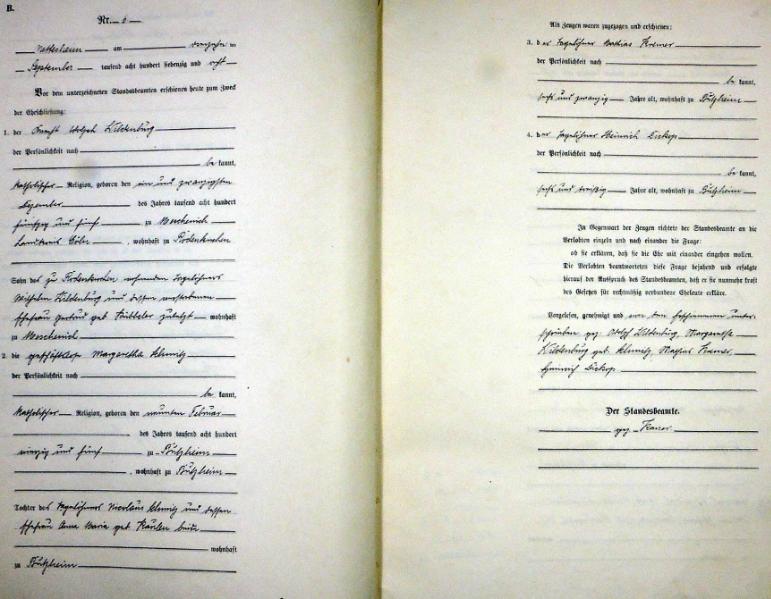 B.
Nr. 6
Nettesheim am dreizehnten
September tausend acht hundert siebenzig und acht
Vor dem unterzeichneten Standesbeamten erschienen heute zum Zweck
der Eheschließung:
1. der Knecht Adolph Kildenburg
der Persönlichkeit nach
be kannt,
katholischer Religion, geboren den ein und zwanzigsten
Dezember des Jahres tausend acht hundert
fünfzig und fünf zu Meschenich
Landkreis Cöln, wohnhaft zu Rodenkirchen
Sohn des zu Rodenkirchen wohnenden Tagelöhners
Wilhelm Kildenburg und dessen verstorbenen
Ehefrau Gertrud geb. zuletzt wohnhaft
zu Meschenich
2. die geschäftslose Margaretha Schmitz
der Persönlichkeit nach
be kannt,
katholischer Religion, geboren den neunten Februar
des Jahres tausend acht hundert
vierzig und fünf zu Bützheim
, wohnhaft zu Bützheim
Tochter des Tagelöhners Nicolaus Schmitz und dessen
Ehefrau Anna Maria geb. beide
wohnhaft
zu Bützheim
Als Zeugen waren zugezogen und erschienen:
3. der Tagelöhner Mathias Kremer
der Persönlichkeit nach
be kannt,
sechs und zwanzig Jahre alt, wohnhaft zu Bützheim
4. der Tagelöhner Heinrich Bishop
der Persönlichkeit nach
be kannt,
sechs und dreißig Jahre alt, wohnhaft zu Bützheim
In Gegenwart der Zeugen richtete der Standesbeamte an die
Verlobten einzeln und nach einander die Frage:
ob sie erklären, daß sie die Ehe mit einander eingehen wollen.
Die Verlobten beantworteten diese Frage bejahend und erfolgte
hierauf der Ausspruch des Standesbeamten, daß er sie nunmehr kraft
des Gesetzes für rechtmäßig verbundene Eheleute erkläre.
Vorgelesen, genehmigt und von den Erschienenen unter-
schrieben gez. Adolph Kildenburg, Margaretha
Kildenburg geb. Schmitz, Mathias Kremer,
Heinrich Bishop
Der Standesbeamte.
gez.